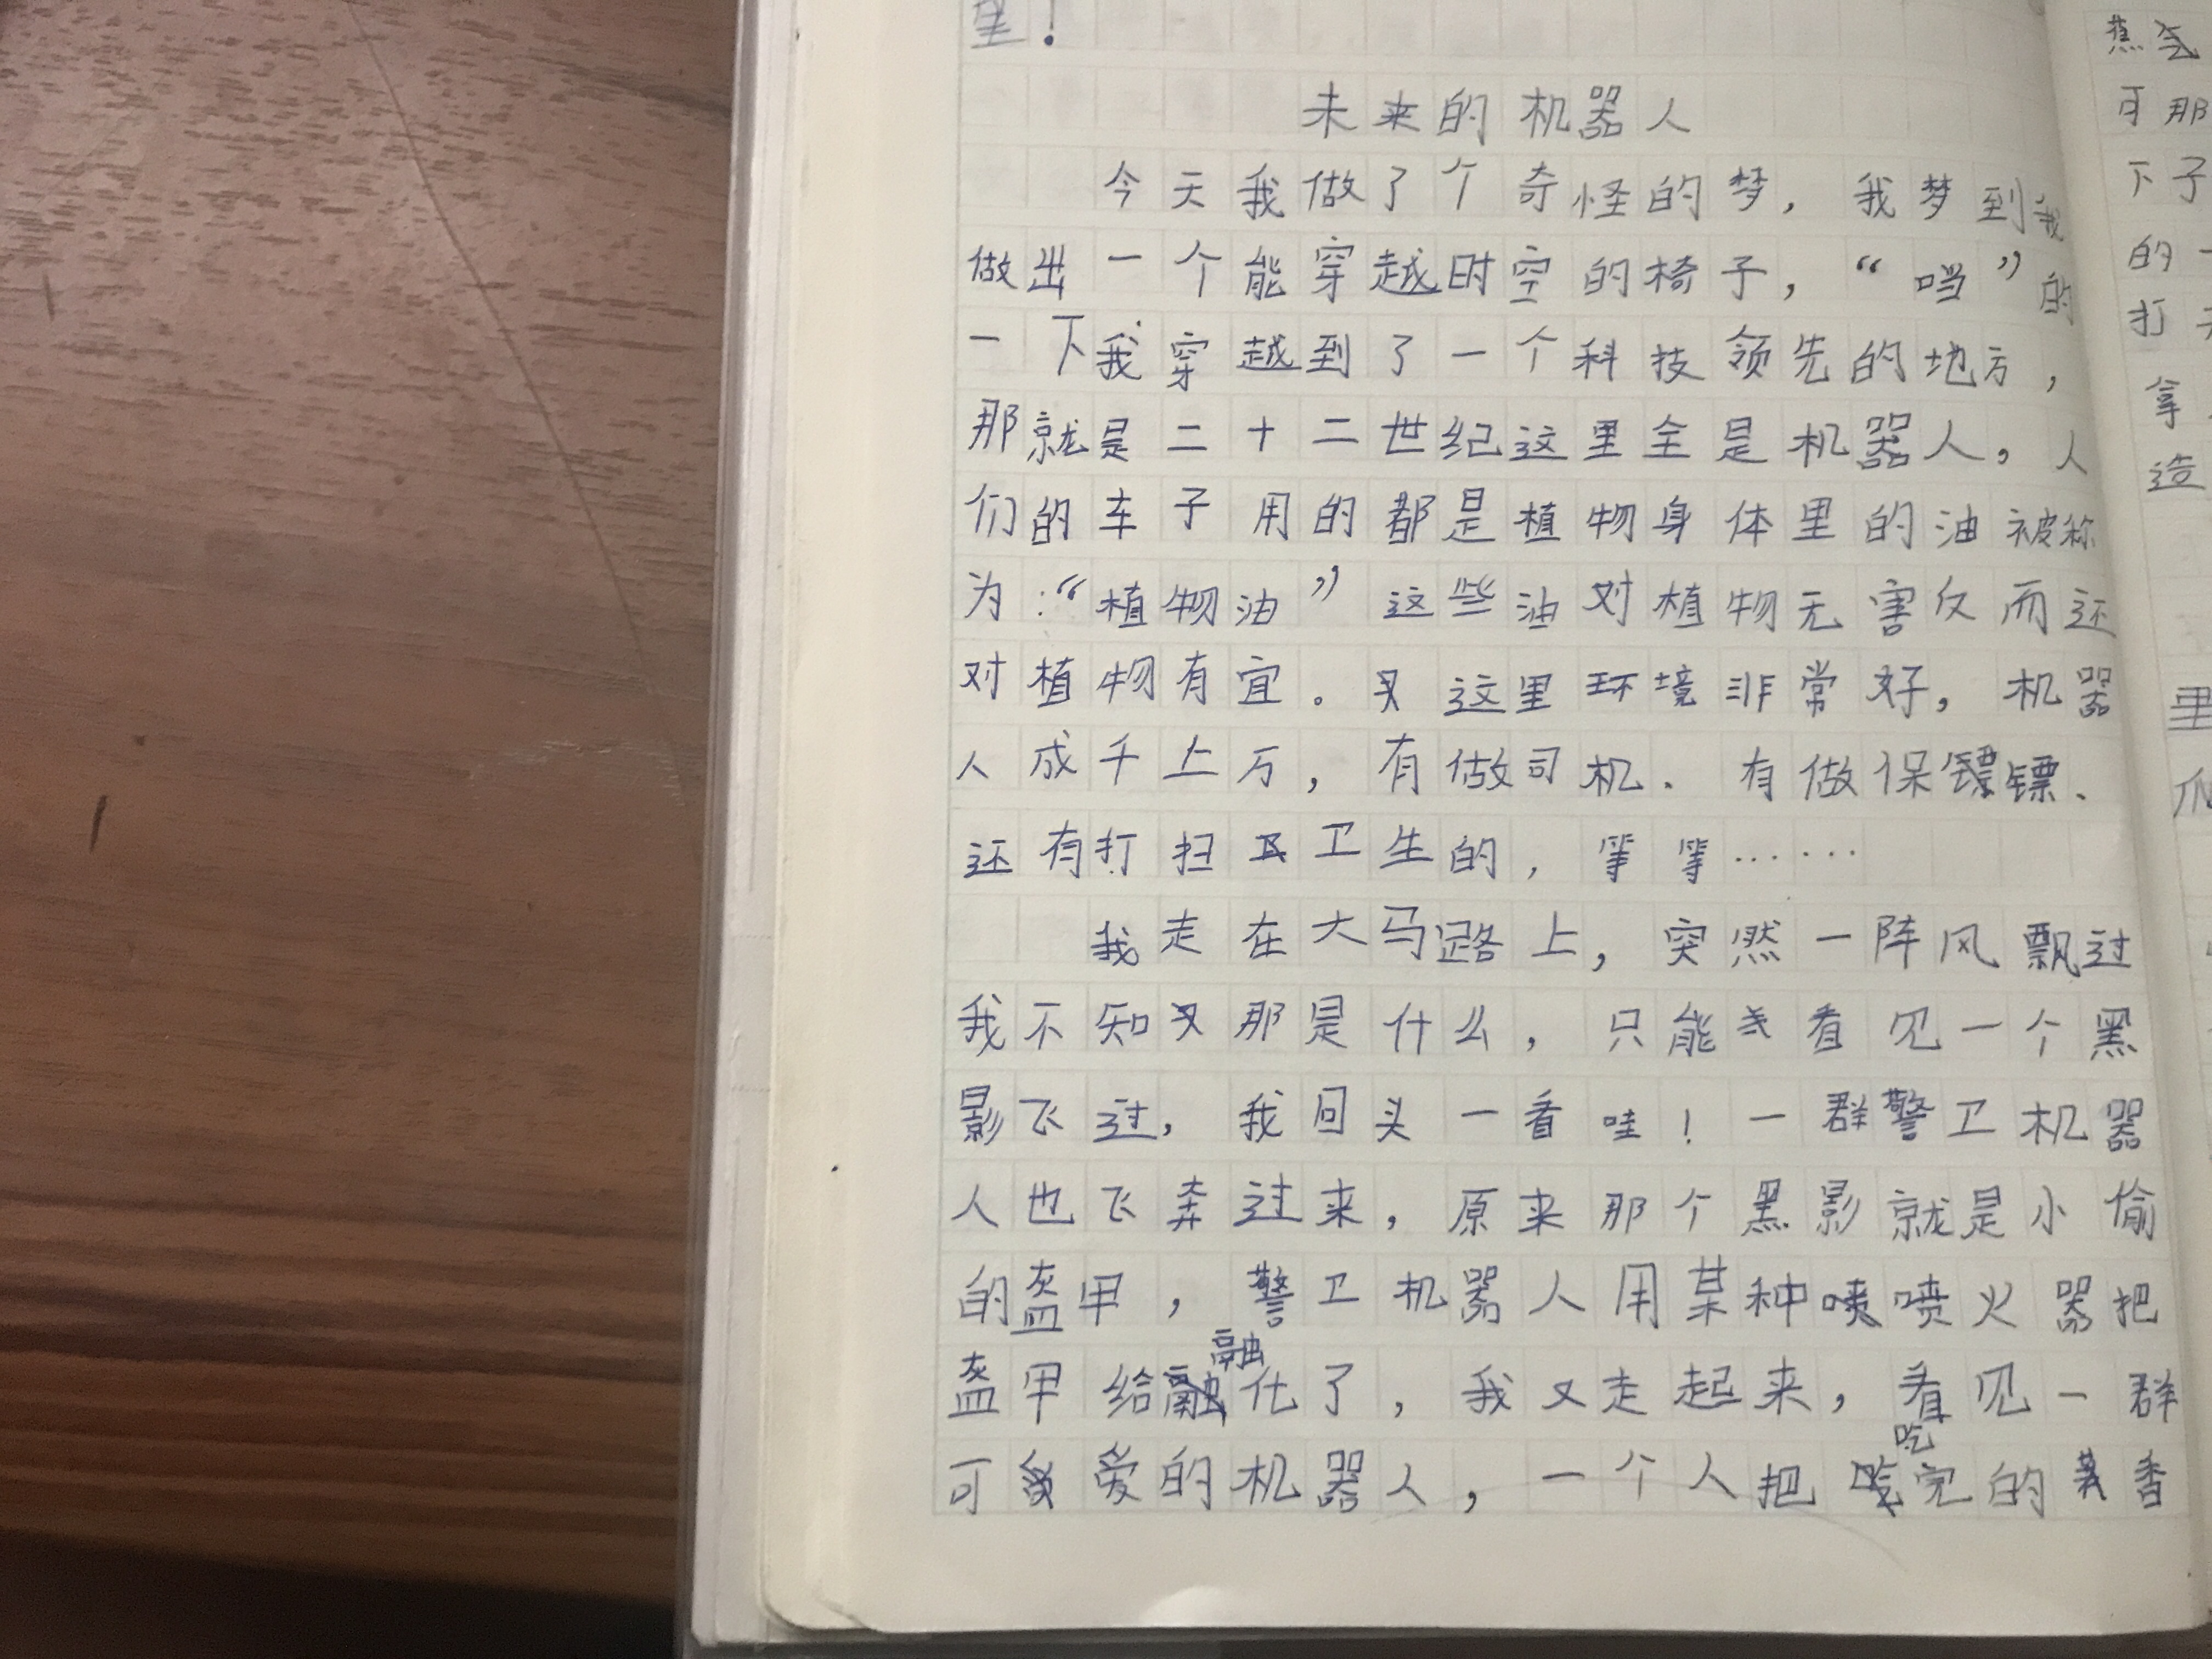 里！
未来的机器人
今天我做了个奇怪的梦，我梦到我
做出一个能穿越时空的椅子，“当”的
一下我穿越到了一个科技领先的地方，
那就是二十二世纪这里全是机器人，人
们的车子用的都是植物身体里的油被称
为：“植物油”这些油对植物无害反而还
对植物有宜。这里环境非常好，机器
人成千上万，有做司机、有做保镖、
还有打扫卫生的，等等……
我走在大马路上，突然一阵风飘过
我不知那是什么，只能看见一个黑
影飞过，我回头一看哇！一群警卫机器
人也飞奔过来，原来那个黑影就是小偷
的盔甲，警卫机器人用某种喷火器把
盔甲给融化了，我又走起来，看见一群
可爱的机器人，一个人把吃完的香
蕉
可那
下子
的一
打开
拿
造
里
爪